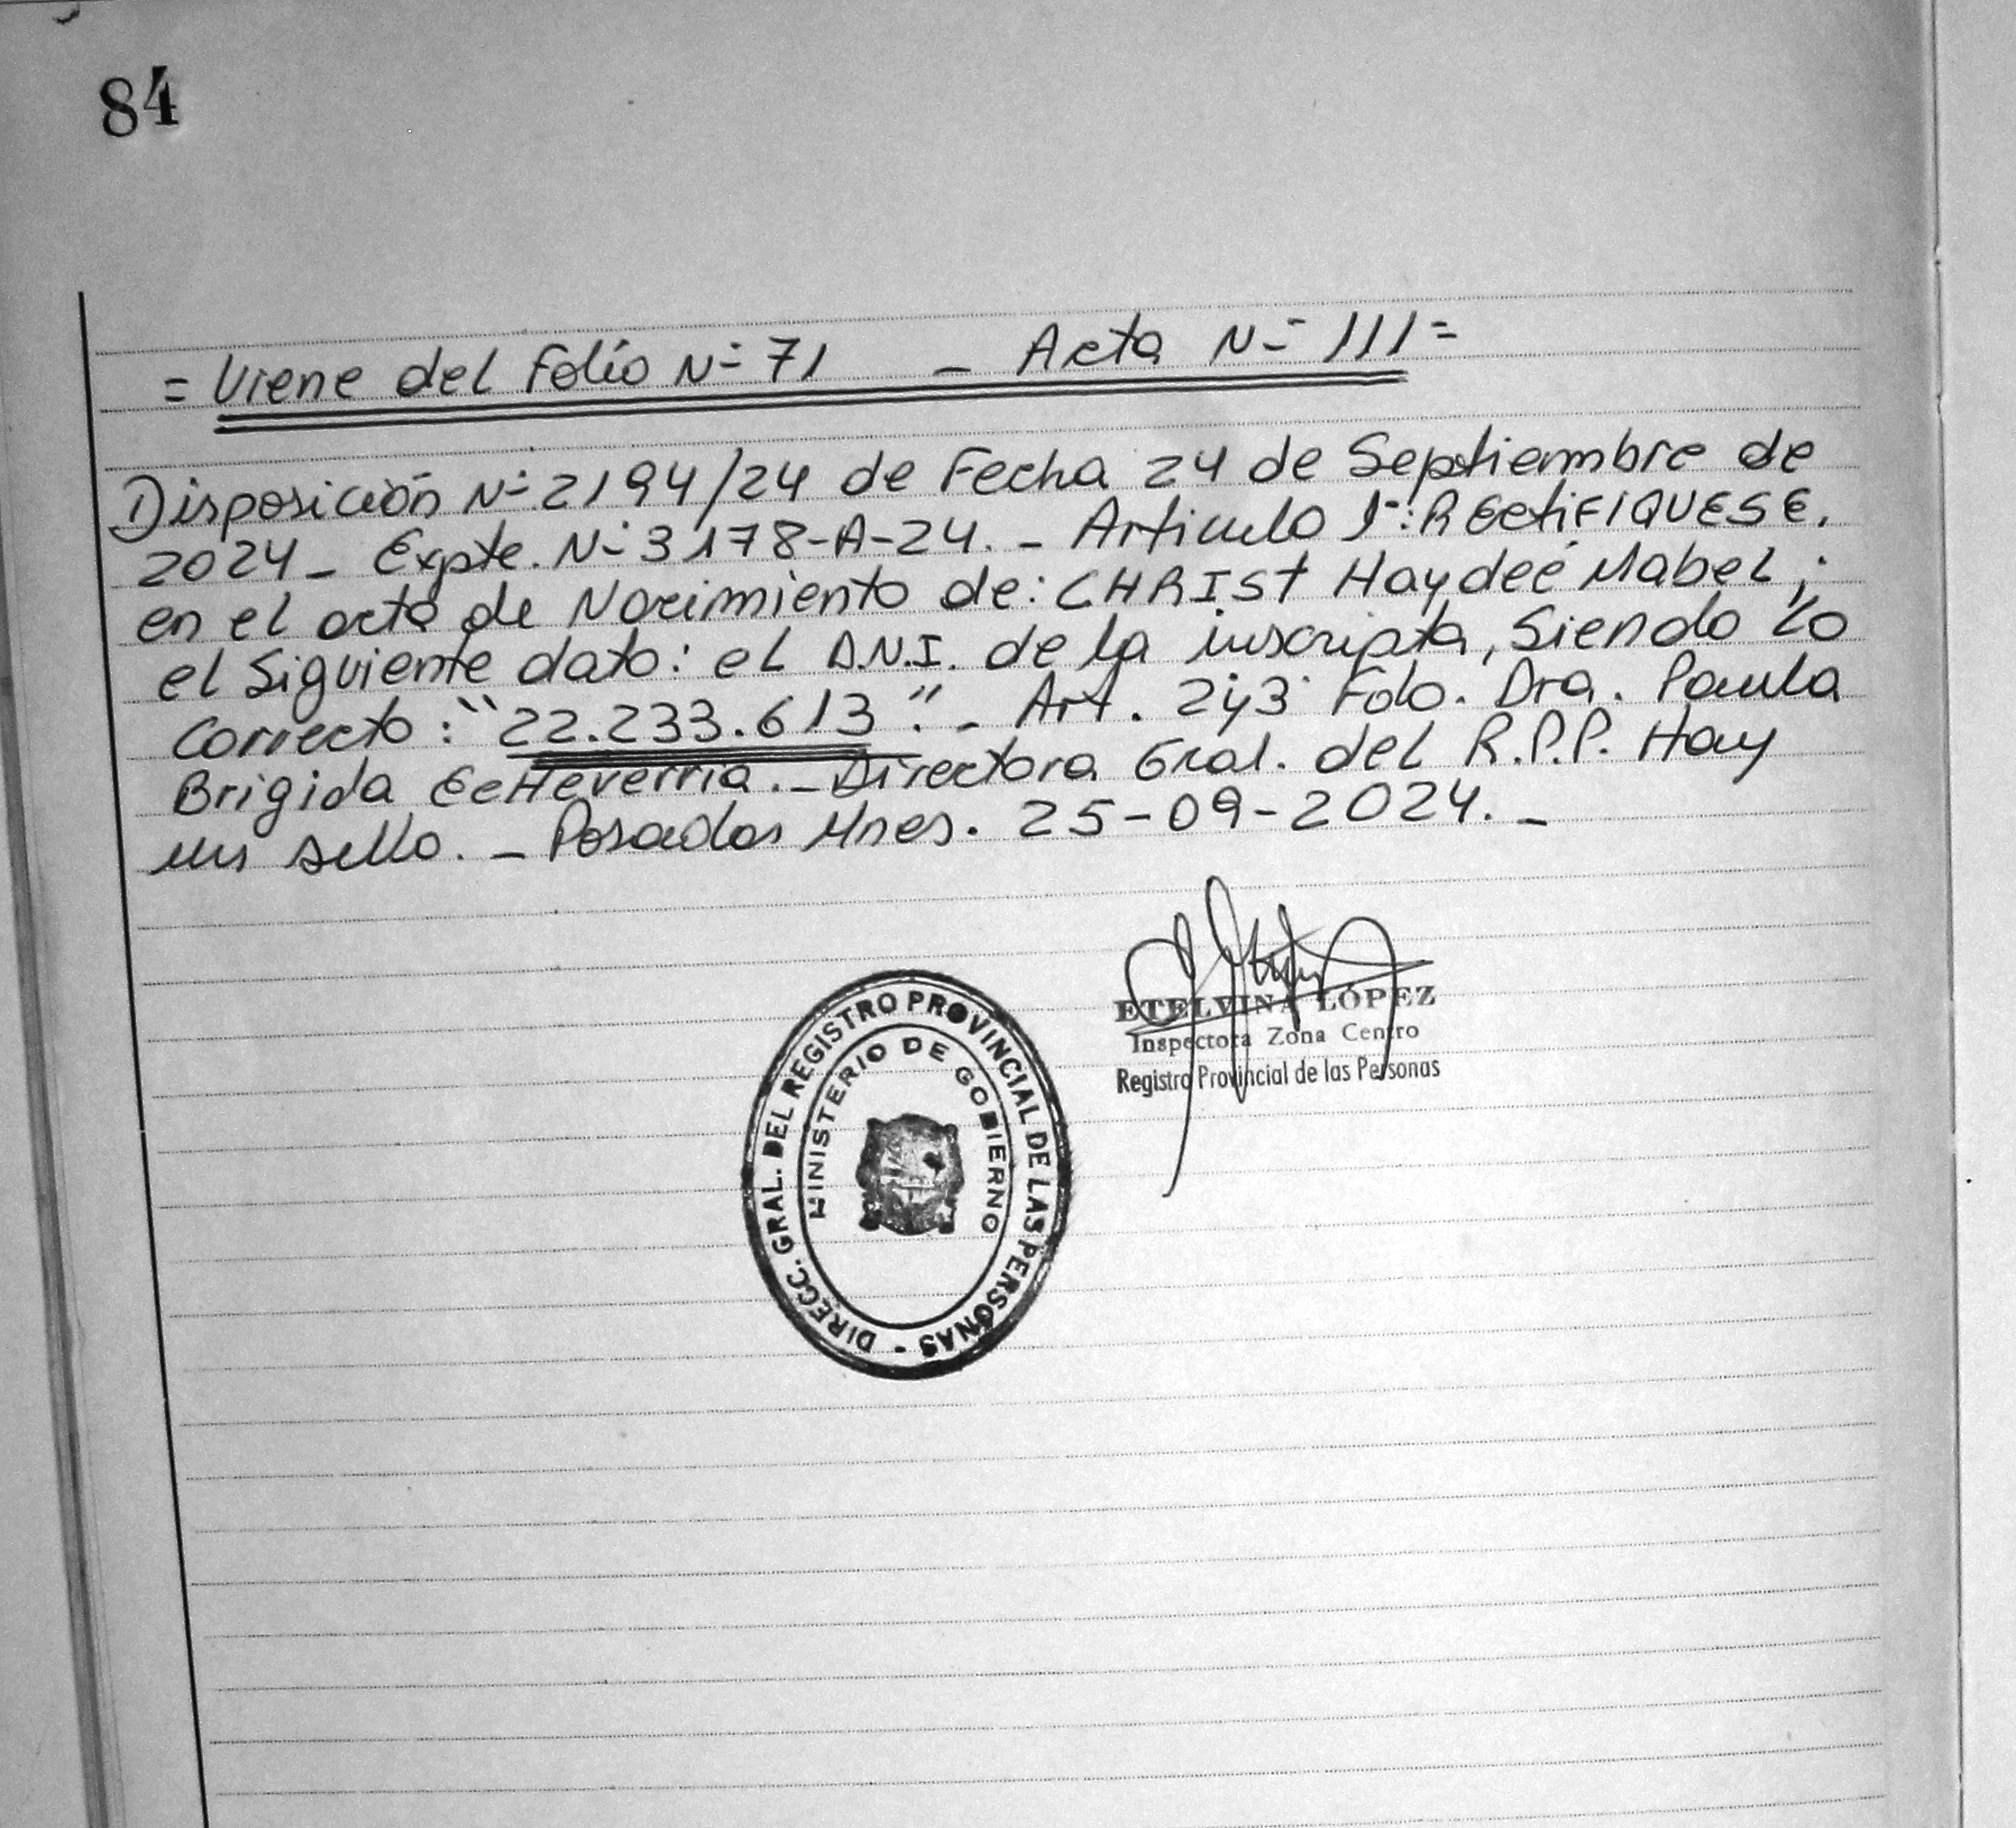 84
= Viene del Folio Nº 71 - Acta Nº 111 =
Disposición Nº 2194/24 de Fecha 24 de Septiembre de
2024 - Expte. Nº 3178-A-24. - Articulo 1º: RECtiFIQUESE,
en el acta de Nacimiento de: CHRISt Haydeé Mabel ;
el Siguiente dato: el D.N.I. de la inscripta, Siendo lo
Correcto : "22.233.613". - Art. 2y3 Fdo. Dra. Paula
Brigida EcHeverria. - Directora Gral. del R.P.P. Hay
un sello. - Posadas Mnes. 25-09-2024. -
ETELVINA LÓPEZ
Inspectora Zona Centro
Registro Provincial de las Personas
DIRECC. GRAL. DEL REGISTRO PROVINCIAL DE LAS PERSONAS -
MINISTERIO DE GOBIERNO